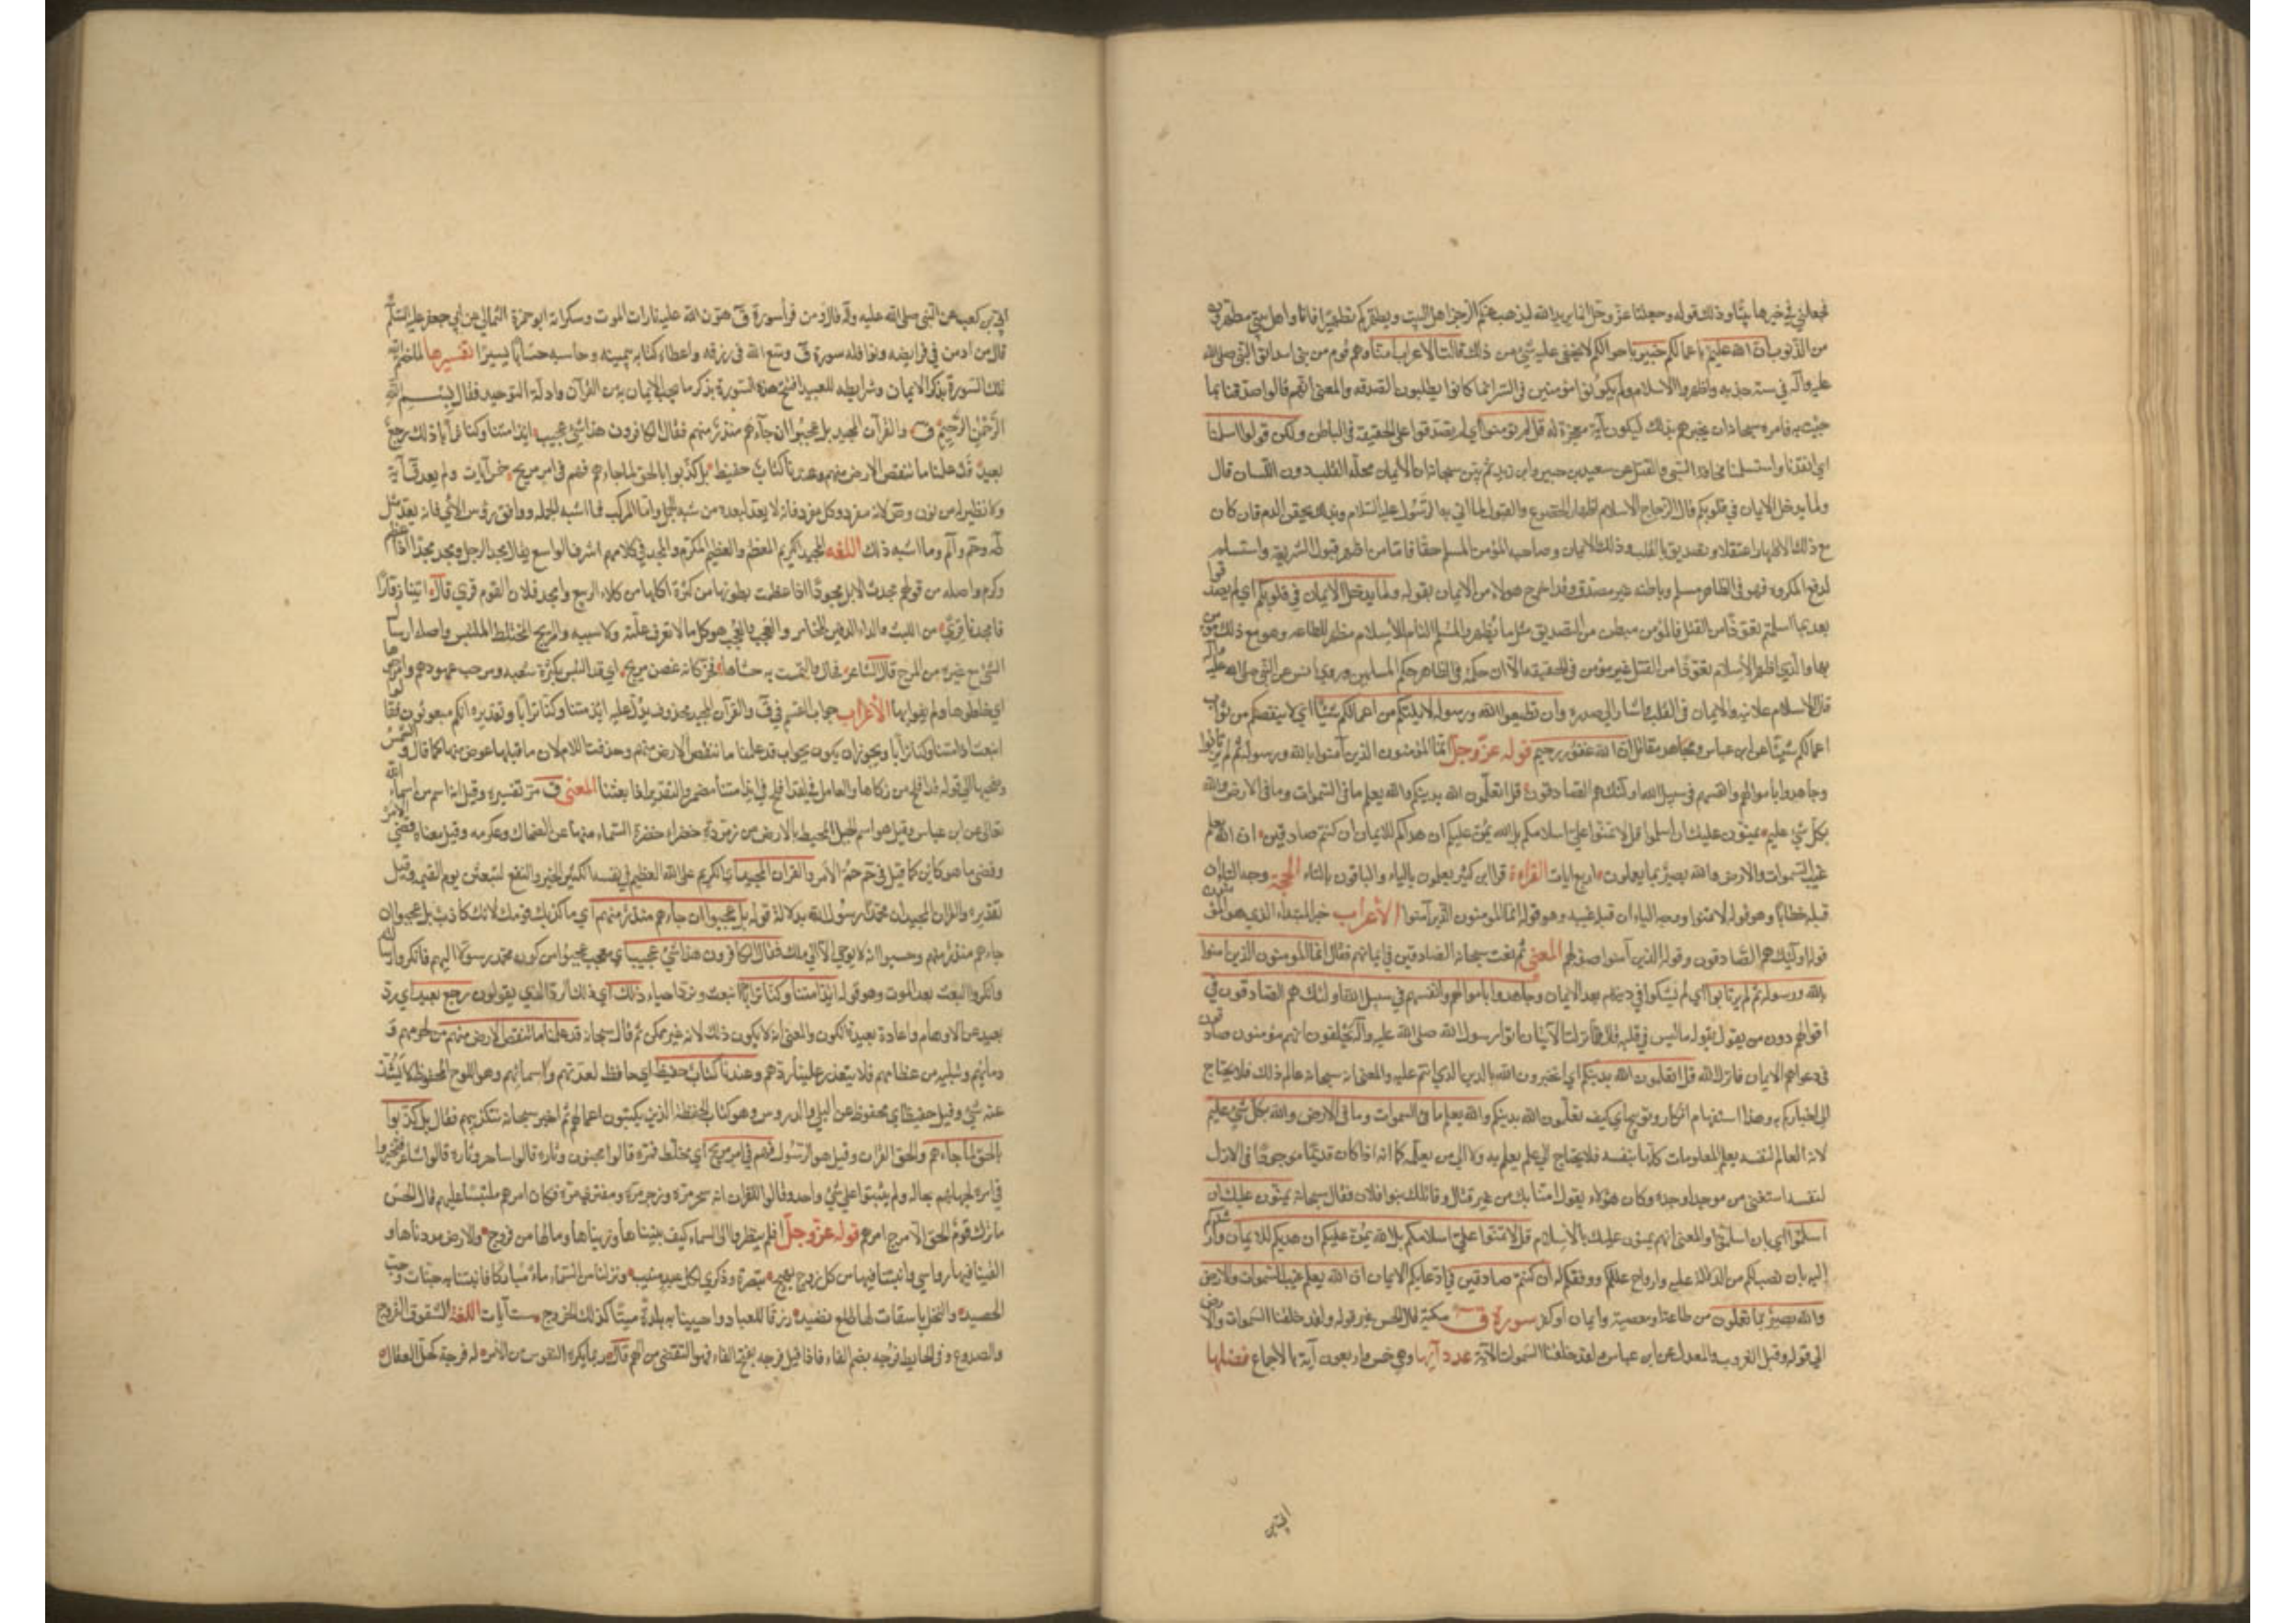 فجعلني في خيرها بيتا وذلك قوله وجعلنا عز وجل انما يريد الله ليذهب عنكم الرجس اهل البيت ويطهركم تطهيرا فانا واهل بيتي مطهرون
من الذنوب ان الله عليم باعمالكم خبير باحوالكم لا يخفى عليه شئ من ذلك قالت الاعراب امنا وهم قوم من بني اسد اتوا النبي صلى الله
عليه وآله في سنة جدبه واظهروا الاسلام ولم يكونوا مؤمنين في السر انما كانوا يطلبون الصدقه والمعنى انهم قالوا صدقنا بما
جئت به فامره سبحانه ان يخبرهم بذلك ليكون آية معجزة له قل لم تؤمنوا اي لم تصدقوا على الحقيقة في الباطن ولكن قولوا اسلمنا
اي انقدنا واستسلمنا مخافة السبي والقتل عن سعيد بن جبير وابن زيد ثم بين سبحانه ان الايمان محله القلب دون اللسان قال
ولما يدخل الايمان في قلوبكم قال الزجاج الاسلام اظهار الخضوع والقبول لما اتي به الرسول عليه السلام وبذلك يحقن الدم فان كان
مع ذلك الاظهار اعتقاد وتصديق بالقلب فذلك الايمان وصاحبه المؤمن المسلم حقا فاما من اظهر قبول الشريعة واستسلم
لدفع المكروه فهو في الظاهر مسلم وباطنه غير مصدق وقد اخرج هولاء من الايمان بقوله ولما يدخل الايمان في قلوبكم اي لم تصدقوا
بعد بما اسلمتم تعوذا من القتل فالمؤمن مبطن من التصديق مثل ما يظهر والمسلم التام للاسلام مظهر للطاعه وهو مع ذلك مؤمن
بها والذي اظهر الاسلام تعوذا من القتل غير مؤمن في الحقيقه الا ان حكمه في الظاهر حكم المسلمين وروي انس عن النبي صلى الله عليه وآله
قال الاسلام علانيه والايمان في القلب واشار الى صدره وان تطيعوا الله ورسوله لا يلتكم من اعمالكم شيئا اي لا ينقصكم من ثواب
اعمالكم شيئا عن ابن عباس ومجاهد ومقاتل ان الله غفور رحيم قوله عز وجل انما المؤمنون الذين آمنوا بالله ورسوله ثم لم يرتابوا
وجاهدوا باموالهم وانفسهم في سبيل الله اولئك هم الصادقون قل اتعلمون الله بدينكم والله يعلم ما في السموات وما في الارض والله
بكل شئ عليم يمنون عليك ان اسلموا قل لا تمنوا علي اسلامكم بل الله يمن عليكم ان هداكم للايمان ان كنتم صادقين ان الله يعلم
غيب السموات والارض والله بصير بما يعملون اربع ايات القراءة قرا ابن كثير يعملون بالياء والباقون بالتاء الحجة وجه التاء ان
قبله خطابا وهو قوله لا تمنوا ووجه الياء ان قبله غيبه وهو قوله انما المومنون الذين آمنوا الأعراب خبر المبتداء الذي هو المؤمنون
قوله اولئك هم الصادقون وقوله الذين آمنوا صفة لهم المعنى ثم نعت سبحانه الصادقين في ايمانهم فقال انما المومنون الذين امنوا
بالله ورسوله ثم لم يرتابوا اي لم يشكوا في دينهم بعد الايمان وجاهدوا باموالهم وانفسهم في سبيل الله اولئك هم الصادقون في
اقوالهم دون من يقول بقوله ما ليس في قلبه قال فلما نزلت الآيتان اتوا رسول الله صلى الله عليه وآله يحلفون انهم مؤمنون صادقون
في دعواهم الايمان فانزل الله قل اتعلمون الله بدينكم اي اتخبرون الله بالدين الذي انتم عليه والمعنى انه سبحانه عالم بذلك فلا يحتاج
الى اخباركم به وهذا استفهام انكار وتوبيخ اي كيف تعلمون الله بدينكم والله يعلم ما في السموات وما في الارض والله بكل شئ عليم
لانه العالم لنفسه يعلم المعلومات كلها بنفسه فلا يحتاج الى علم يعلم به ولا الى من يعلمه كما انه اذا كان قديما موجودا في الازل
لنفسه استغنى عن موجد اوجده وكان هؤلاء يقولون امنا بك من غير قتال وقاتلك بنو فلان فقال سبحانه يمنون عليك ان
اسلموا اي بان اسلموا والمعنى انهم يمنون عليك بالاسلام قل لا تمنوا علي اسلامكم بل الله يمن عليكم ان هديكم للايمان وارشدكم
اليه بان نصب لكم من الادلة عليه وازاح عللكم ووفقكم له ان كنتم صادقين في ادعائكم الايمان ان الله يعلم غيب السموات والارض
والله بصير بما تعملون من طاعة او معصية وايمان او كفر سورة ق مكية قال الحسن غير قوله ولقد خلقنا السموات والارض
الى قوله وقبل الغروب والمعدل عن ابن عباس ولقد خلقنا السموات الآية عدد آيها وهي خمس واربعون آية بالاجماع فضلها
ابي بن
ابي بن كعب عن النبي صلى الله عليه وآله قال ومن قرأ سورة ق هون الله عليه تارات الموت وسكراته ابو حمزة الثمالي عن ابي جعفر عليه السلام
قال من ادمن في فرايضه ونوافله سورة ق وسع الله في رزقه واعطاه كتابه بيمينه وحاسبه حسابا يسيرا تفسيرها لما ختم الله
تلك السورة بذكر الايمان وشرايطه للعبيد افتتح هذه السورة بذكر ما يجب الايمان به من القرآن وادلة التوحيد فقال بسم الله
الرحمن الرحيم ق والقرآن المجيد بل عجبوا ان جاءهم منذر منهم فقال الكافرون هذا شئ عجيب ائذا متنا وكنا ترابا ذلك رجع
بعيد قد علمنا ما تنقص الارض منهم وعندنا كتاب حفيظ بل كذبوا بالحق لما جاءهم فهم في امر مريج خمس آيات ولم يعد ق آية
ولا نظيره من نون وص لانه مفرد وكل مفرد فانه لا يعد لبعده من شبه الجمل واما المركب فما اشبه الجملة ووافق رؤس الآي فانه يعد مثل
طه وحم والم وما اشبه ذلك اللغه المجيد الكريم المعظم والعظيم المكرم والمجد في كلامهم الشرف الواسع يقال مجد الرجل ومجد مجدا اذا عظم
وكرم واصله من قولهم مجدت الابل مجودا اذا عظمت بطونها من كثرة اكلها من كلاء الربيع وامجد فلان القوم قري قال اتيناه زوارا
فامجدنا قري من البث والداء الدفين المخامر والعجيب والعجب هو كل ما لا تعرف علته ولا سببه والمريج المختلط الملتبس واصله ارسال
الشئ مع غيره من المرج قال الشاعر فجال والتمست به حشاها فخر كانه غصن مريج اي قد التبس بكثرة شعبه ومرجت عهودهم وامرجوها
اي خلطوها ولم يفوا بها الأعراب جواب القسم في ق والقرآن المجيد محذوف يدل عليه ائذا متنا وكنا ترابا وتقديره انكم مبعوثون فقالوا
انبعث اذا متنا وكنا ترابا ويجوز ان يكون الجواب قد علمنا ما تنقص الارض منهم وحذفت اللام لان ما قبلها عوض منها كما قال والشمس
وضحيها الى قوله قد افلح من زكاها والعامل في لقد افلح في اذا متنا مضمر والتقدير اذا بعثنا المعنى ق مر تفسيره وقيل انه اسم من اسماء الله
تعالى عن ابن عباس وقيل هو اسم الجبل المحيط بالارض من زمردة خضراء خضرة السماء منها عن الضحاك وعكرمه وقيل معناه قضي الامر
وقضي ما هو كاين كما قيل في حم حم الأمر والقران المجيد اي الكريم على الله العظيم في نفسه الكثير الخير والنفع لتبعثن يوم القيمه وقيل
تقديره والقران المجيد ان محمدا رسول الله بدلالة قوله بل عجبوا ان جاءهم منذر منهم اي ما كذبك قومك لانك كاذب بل عجبوا ان
جاءهم منذر منهم وحسبوا انه لا يوحي الا الى ملك فقال الكافرون هذا شئ عجيب اي معجب عجبوا من كون محمد رسولا اليهم فانكروا رسالته
وانكروا البعث بعد الموت وهو قوله ائذا متنا وكنا ترابا انبعث ونرد احياء ذلك اي ذلك الرد الذي يقولون رجع بعيد اي رد
بعيد عن الاوهام واعادة بعيدة الكون والمعنى انه لا يكون ذلك لانه غير ممكن ثم قال سبحانه قد علمنا ما تنقص الارض منهم من لحومهم و
دمائهم وتبليه من عظامهم فلا يتعذر علينا ردهم وعندنا كتاب حفيظ اي حافظ لعدتهم واسمائهم وهو اللوح المحفوظ لا يشذ
عنه شئ وقيل حفيظ اي محفوظ عن البلى والدروس وهو كتاب الحفظة الذين يكتبون اعمالهم ثم اخبر سبحانه بتكذيبهم فقال بل كذبوا
بالحق لما جاءهم والحق القران وقيل هو الرسول فهم في امر مريج اي مختلط فمرة قالوا مجنون وتارة قالوا ساحر وتارة قالوا شاعر فتحيروا
في امره لجهلهم بحاله ولم يثبتوا على شئ واحد وقالوا للقران انه سحر مرة وزجر مرة ومفترى مرة فكان امرهم ملتبسا عليهم قال الحسن
ما ترك قوم الحق الا مرج امرهم قوله عز وجل افلم ينظروا الى السماء كيف بنيناها وزيناها وما لها من فروج والارض مددناها و
القينا فيها رواسي وانبتنا فيها من كل زوج بهيج تبصرة وذكري لكل عبد منيب ونزلنا من السماء ماء مباركا فانبتنا به جنات وحب
الحصيد والنخل باسقات لها طلع نضيد رزقا للعباد واحيينا به بلدة ميتا كذلك الخروج ست آيات اللغة الشقوق الفروج
والصدوع وفي الحايط فرجه بضم الفاء فاذا قيل فرجه بفتح الفاء فهو التفصي من الهم قال ربما يكره النفوس من الأمر له فرجة كحل العقال